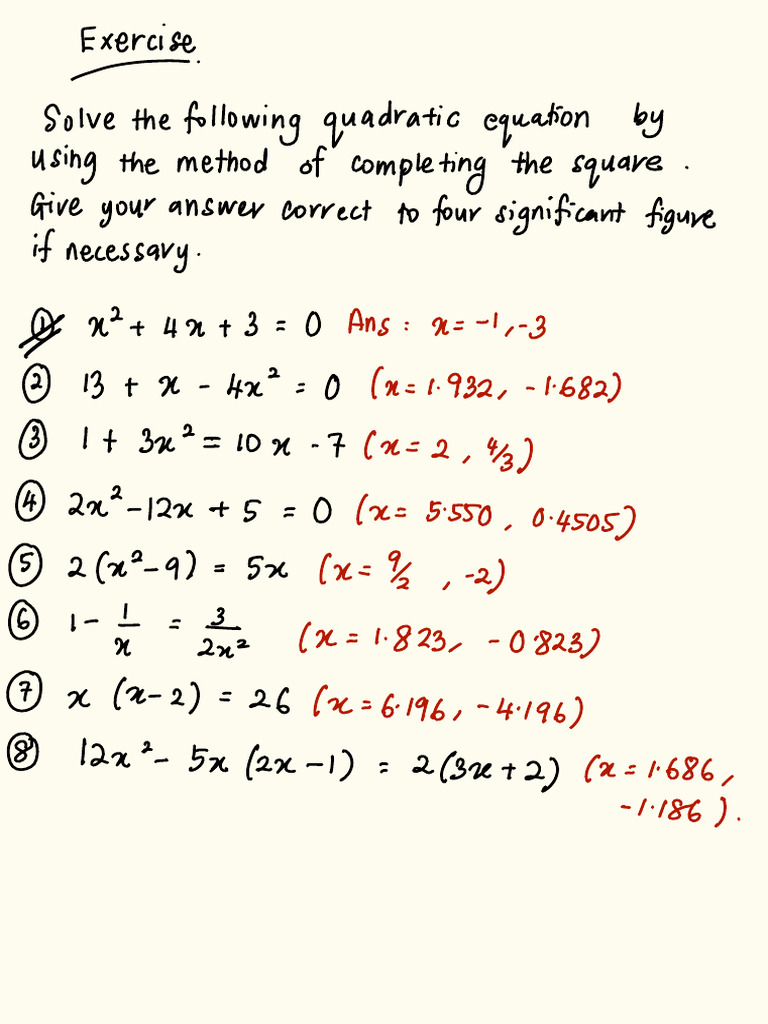 Exercise.
Solve the following quadratic equation by
using the method of completing the square.
Give your answer correct to four significant figure
if necessary.
① x² + 4x + 3 = 0 Ans : x = -1, -3
② 13 + x - 4x² = 0 (x = 1.932, -1.682)
③ 1 + 3x² = 10x - 7 (x = 2, 4/3)
④ 2x² - 12x + 5 = 0 (x = 5.550, 0.4505)
⑤ 2(x² - 9) = 5x (x = 9/2, -2)
⑥ 1 - 1/x = 3/2x² (x = 1.823, -0.823)
⑦ x (x - 2) = 26 (x = 6.196, -4.196)
⑧ 12x² - 5x (2x - 1) = 2(3x + 2) (x = 1.686,
-1.186).